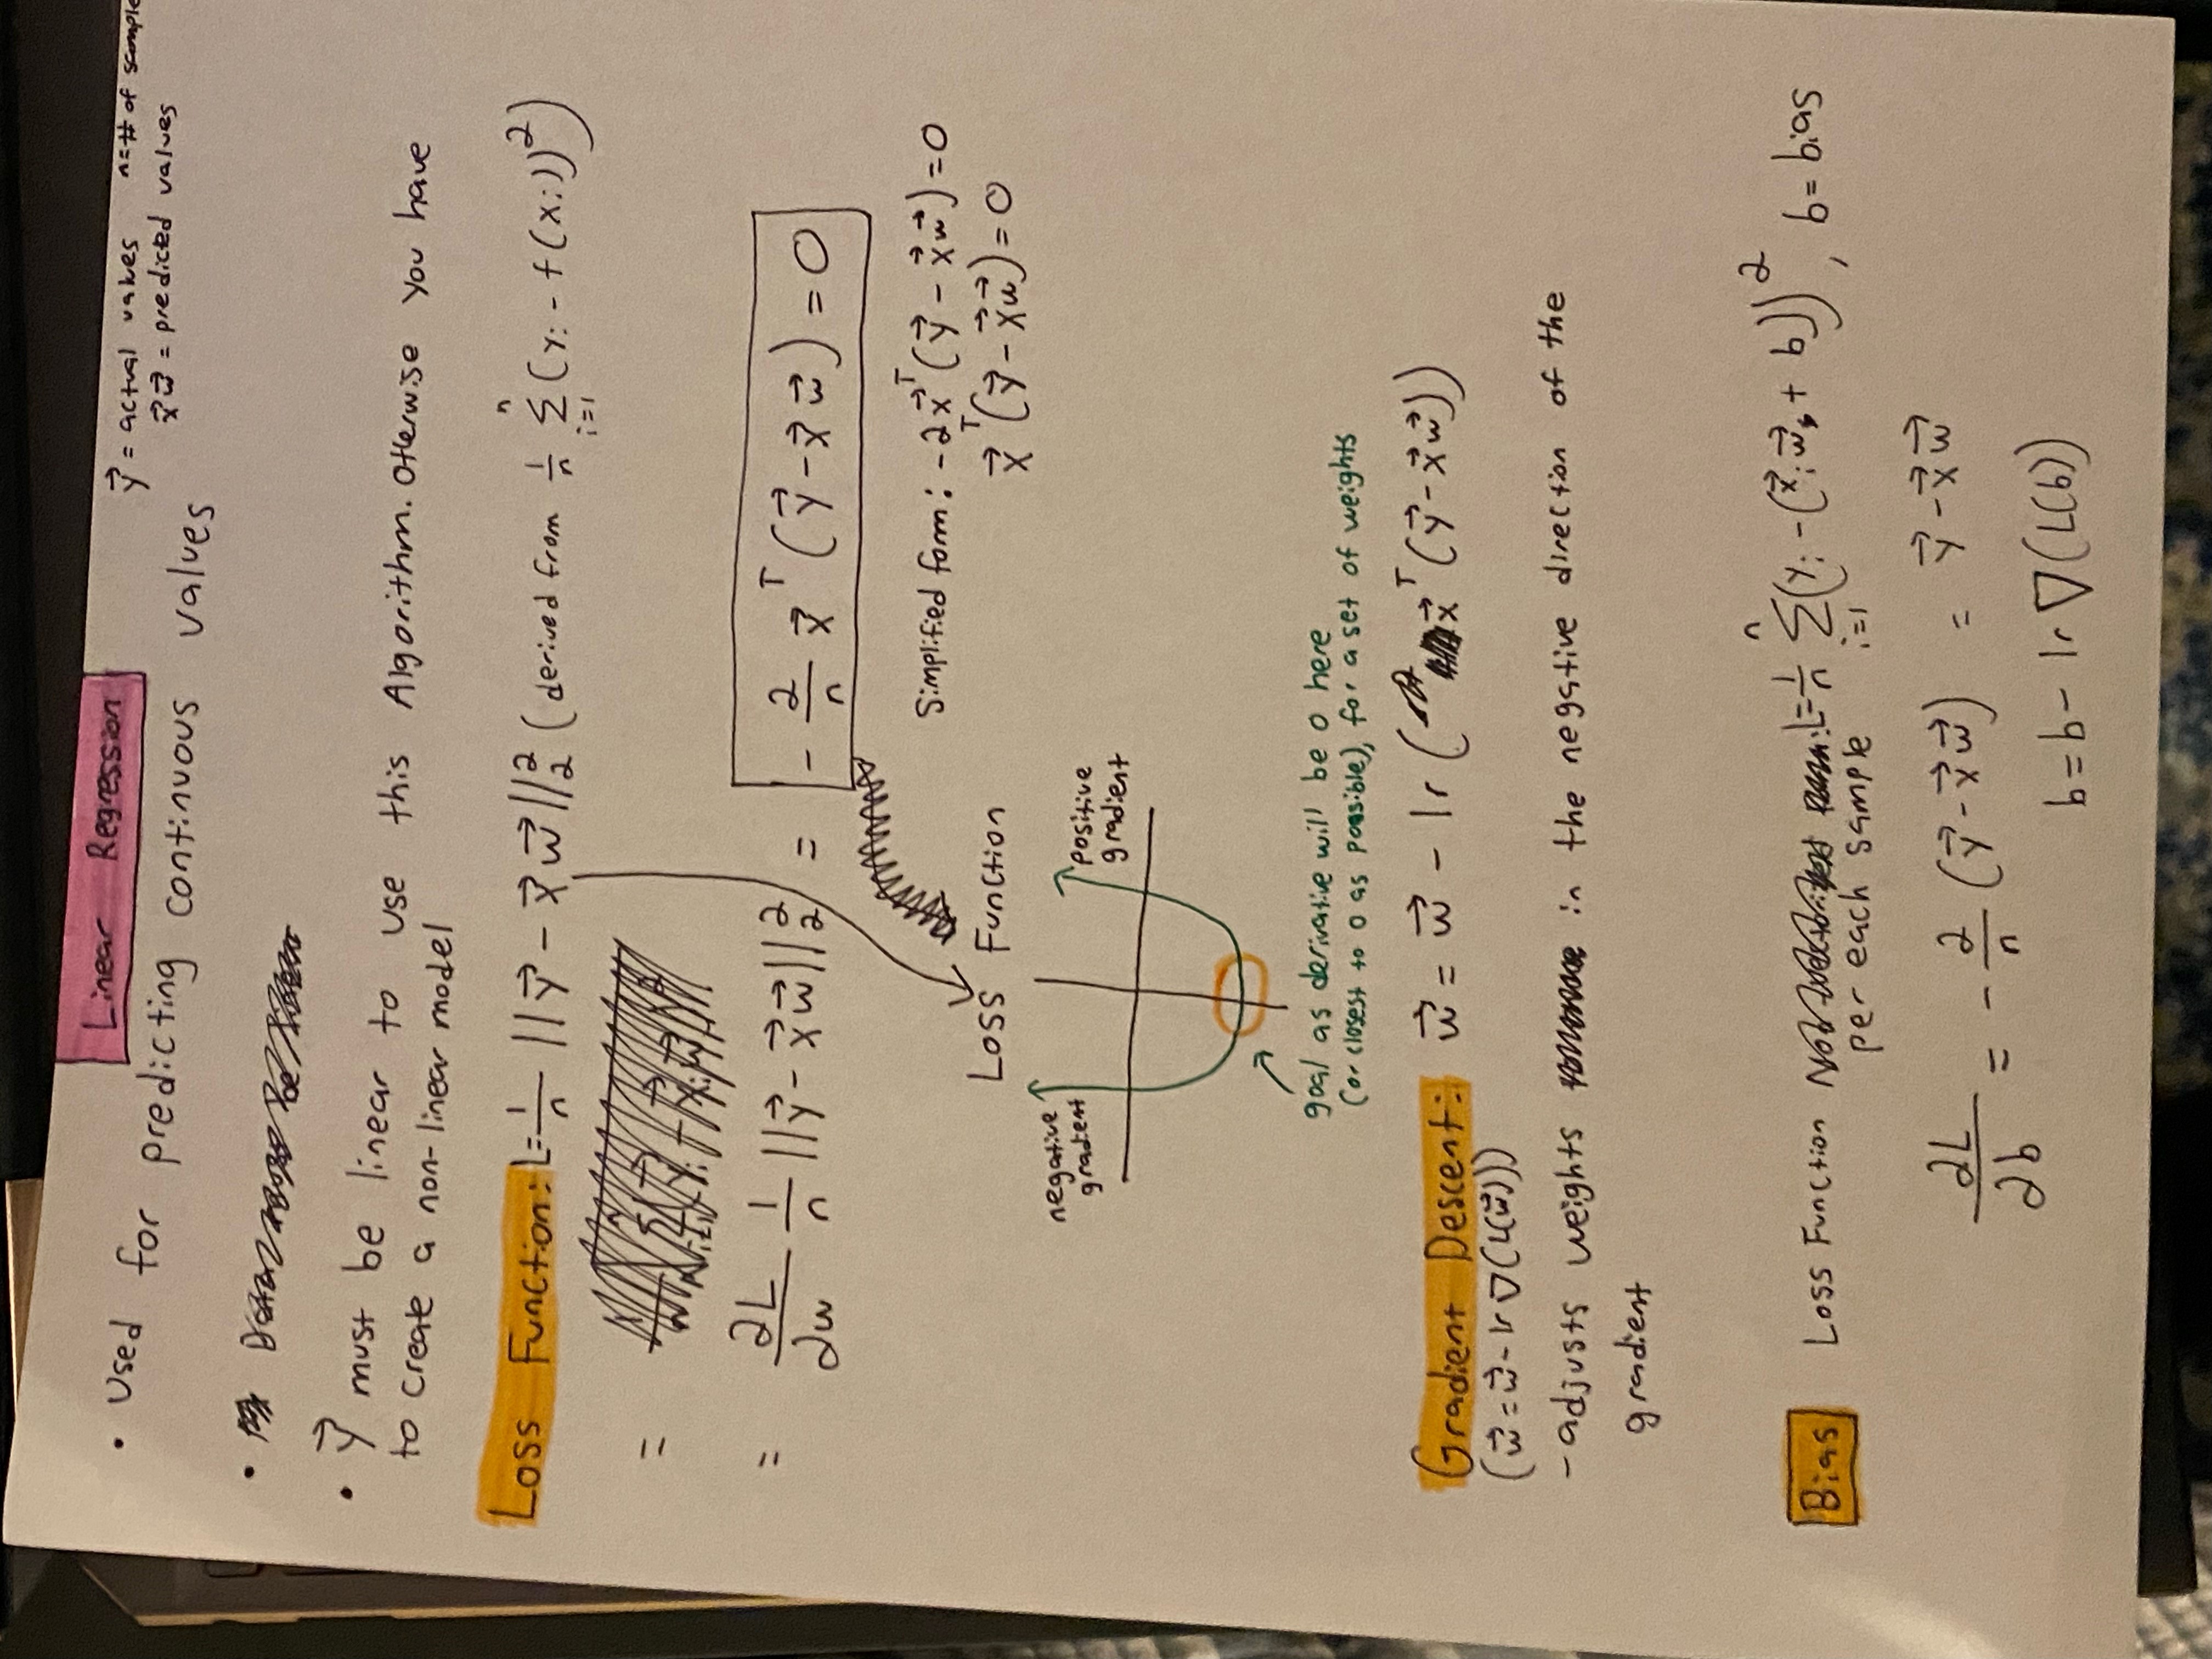 y⃗ = actual values n = # of sample
x⃗w⃗ = predicted values
Linear Regression
• Used for predicting continuous values
• y⃗ must be linear to use this Algorithm. Otherwise you have
to create a non-linear model
Loss Function: L = 1/n ||y⃗ - x⃗w⃗||₂² (derived from 1/n Σᵢ₌₁ⁿ (yᵢ - f(xᵢ))²)
=
= ∂L/∂w 1/n ||y⃗ - x⃗w⃗||₂² = - 2/n x⃗ᵀ(y⃗ - x⃗w⃗) = 0
Simplified form: -2x⃗ᵀ(y⃗ - x⃗w⃗) = 0
x⃗ᵀ(y⃗ - x⃗w⃗) = 0
Loss Function
negative gradient
positive gradient
goal as derivative will be 0 here
(or closest to 0 as possible), for a set of weights
Gradient Descent: w⃗ = w⃗ - lr(x⃗ᵀ(y⃗ - x⃗w⃗))
(w⃗ = w⃗ - lr ∇(L(w⃗)))
- adjusts weights in the negative direction of the
gradient
Bias Loss Function : L = 1/n Σᵢ₌₁ⁿ (yᵢ - (x⃗ᵢw⃗ + b))², b = bias
per each sample
∂L/∂b = - 2/n (y⃗ - x⃗w⃗) = y⃗ - x⃗w⃗
b = b - lr ∇(L(b))